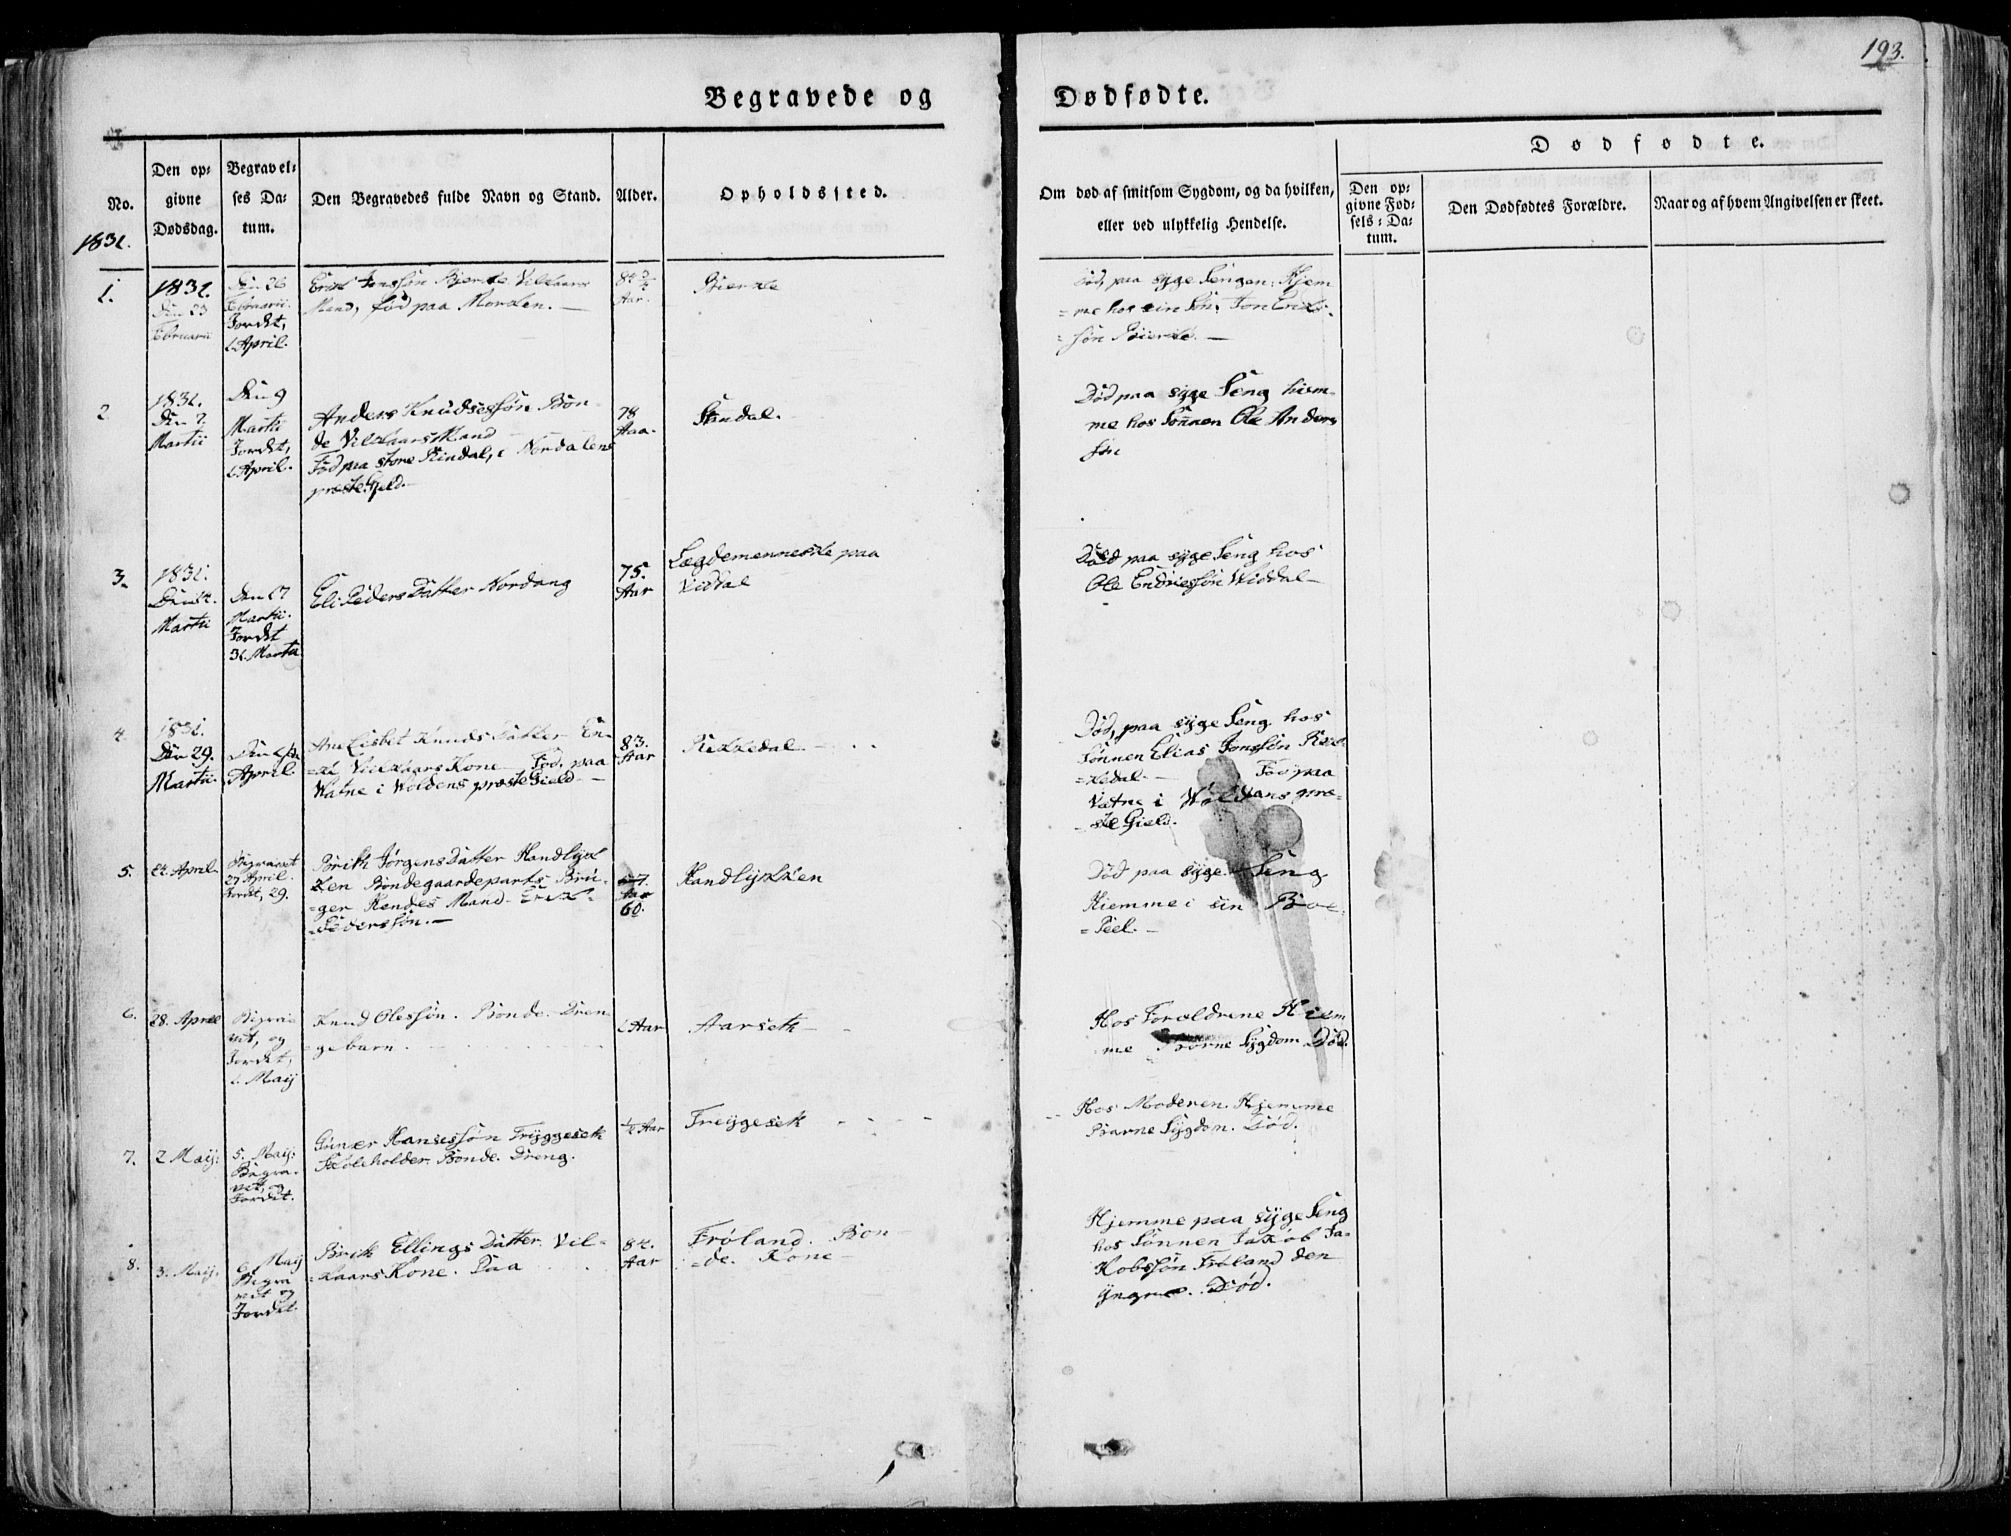 193.
Begravede og Dødfødte.
No.
Den op=
givne
Dødsdag.
Begravel=
ses Da=
tum.
Den Begravedes fulde Navn og Stand.
Alder.
Opholdssted.
Om død af smitsom Sygdom, og da hvilken,
eller ved ulykkelig Hendelse.
Dødfødte.
Den op=
givne Fød=
sels=Da=
tum.
Den Dødfødtes Forældre.
Naar og af hvem Angivelsen er skeet.
1831.
1.
1831.
Den 23
Februarii
Den 26
Februarii
Jordet,
1 April.
Erik Jonssøn Bjerke Vilkaars
Mand, fød paa Morken.
84
Aar.
Bierke
Død, paa syge Sengen. Hjem
=me hos sin Søn Jon Eriks=
=søn Bierke.
2
1831.
Den 7
Martii
Den 9
Martii
Jordet,
1 April.
Anders Knudsessøn Bon
de VilkaarsMand
Fød paa store Rindal, i Nordalens
præsteGield.
78
Aar.
Død paa syge Seng hiem=
me hos Sønnen Ole Anders
søn
3.
1831.
Martii
Den 27
Martii.
Jordet
31. Martii
Eli PedersDatter Nordang
75.
Aar
Lægdemenneske paa
Vidtal
Død paa syge Seng hos
Ole Endressøn Widdal
4.
1831.
Den 29.
Martii.
April
Ane Lisbet KnudsDatter En=
=ke, VilkaarsKone Fød, paa
Watne i Woldens præsteGield
83.
Aar
Rekkedal
Død, paa syge Seng hos
Sønnen Elias Jonssøn Rek=
=kedal. Fød paa
Vatne i Woldens præ=
=steGield.
5.
24. April
Begravet
27 April.
Jordet, 29.
Brith JørgensDatter Handlyk
ken Bondegaardeparts Bru=
=ger Hendes Mand Erik
=Pederssøn.
67.
Aar
60.
Handlykken
Død paa syge Seng
Hiemme i sin Boe=
=Peel.
6.
28. April
Begrav
vet, og
Jordet,
1. Maij
Knud Olessøn. Bonde. Dren
=gebarn.
1 Aar
Aarseth
Hos Forældrene Hiem
me Barne Sygdom Død.
7.
2 Maij:
5. Maij:
Begra=
vet, og
Jordet.
Gunner Hansessøn Tryggeseth
Skoleholder. Bonde. Dreng.
½ Aar
Treyggeseth
Hos Moderen. Hjemme
Barne Sygdom. Død.
8.
3. Maij.
6. Maij
Begra
vet og
Jordet.
Brith EllingsDatter. Vil=
=kaarsKone. Paa
84.
Aar
Frøland. Bon
=de. Kone
Hjemme paa syge Seng
hos Sønnen Jakob Ja=
Kobssøn Frøland den
Yngre. Død.